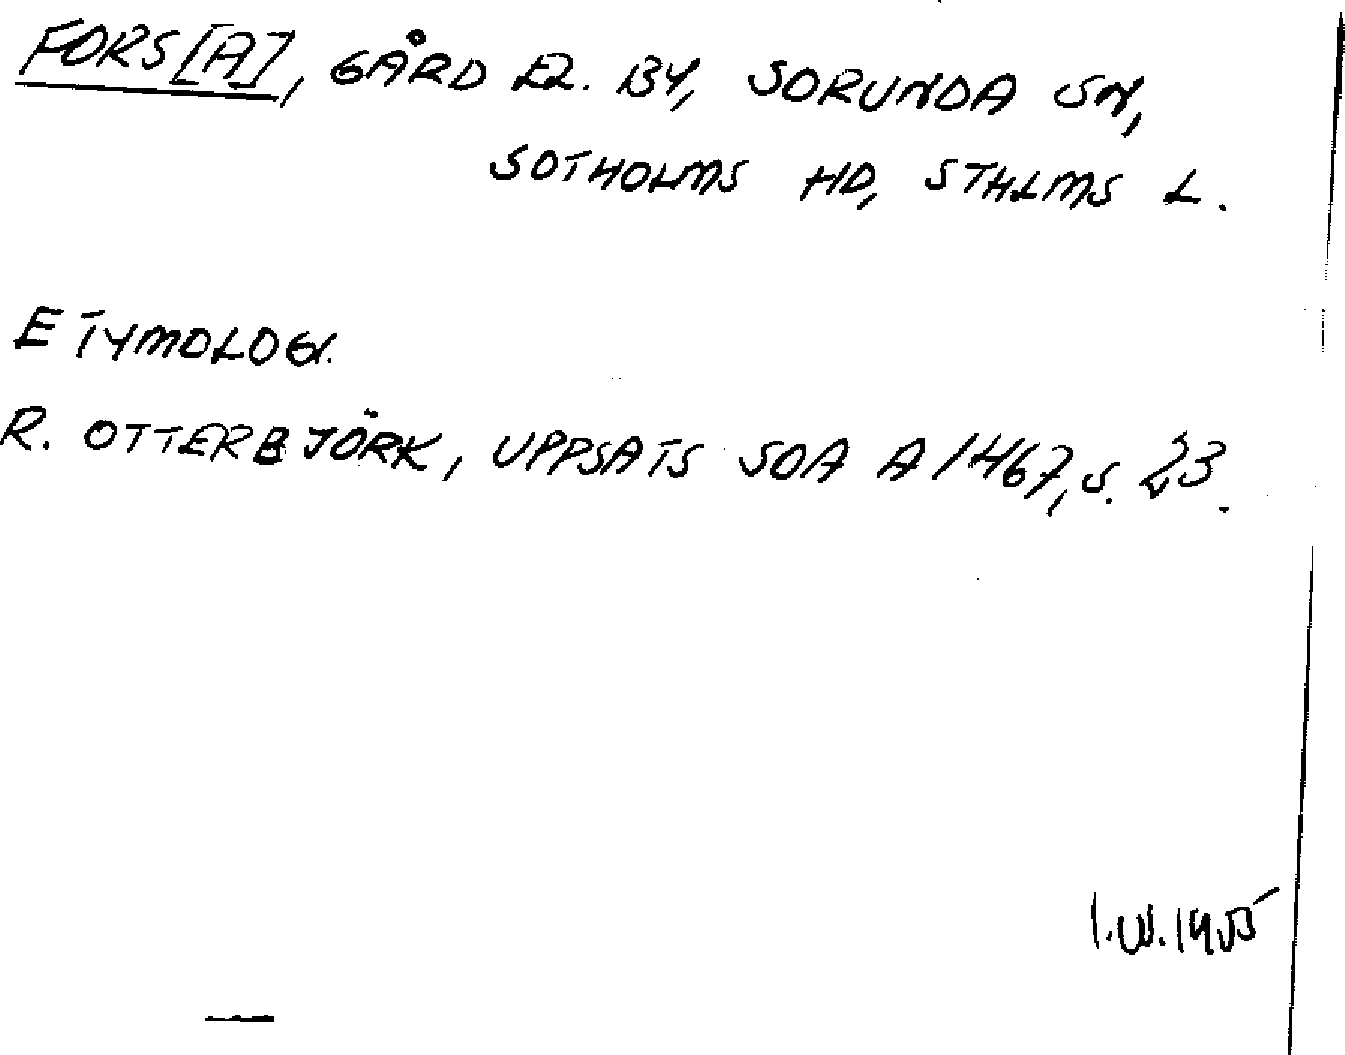 FORS[A], GÅRD EL. BY, SORUNDA SN,
SOTHOLMS HD, STHLMS L.
ETYMOLOGI.
R. OTTERBJÖRK, UPPSATS SOA A 1467, S. 23.
I.W. 1955